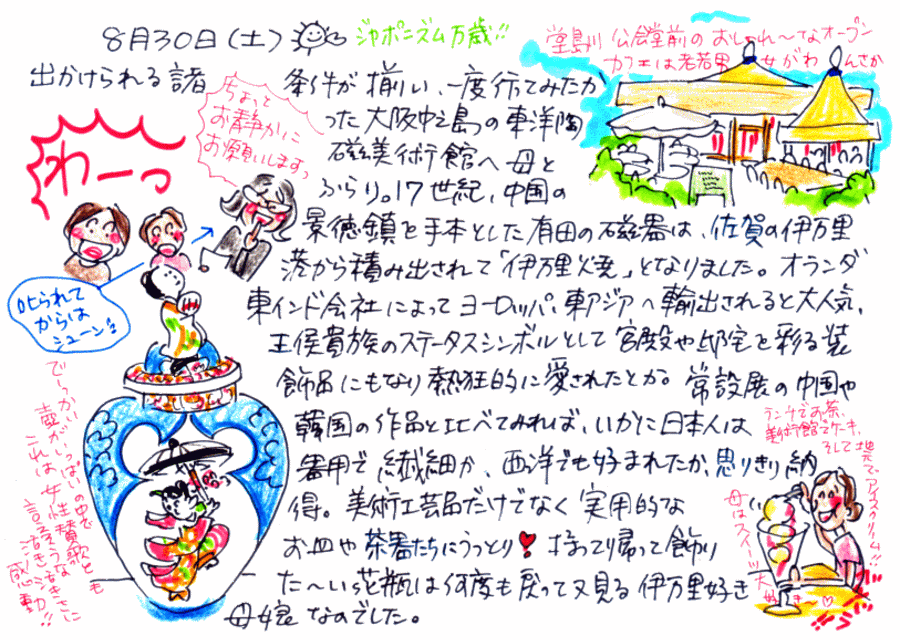 8月30日(土)
ジャポニズム万歳!!
堂島川 公会堂前のおしゃれ〜なオープン
カフェは老若男女がわんさか
出かけられる諸条件が揃い、一度行ってみたか
った大阪中之島の東洋陶
磁美術館へ母と
ふらり。17世紀、中国の
景徳鎮を手本とした有田の磁器は、佐賀の伊万里
港から積み出されて「伊万里焼」となりました。オランダ
東インド会社によってヨーロッパ、東アジアへ輸出されると大人気、
王侯貴族のステータスシンボルとして宮殿や邸宅を彩る装
飾品にもなり熱狂的に愛されたとか。常設展の中国や
韓国の作品と比べてみれば、いかに日本人は
器用で繊細か、西洋でも好まれたか、思いきり納
得。美術工芸品だけでなく実用的な
お皿や茶器たちにうっとり❤持って帰って飾り
た〜いっ花瓶は何度も戻って又見る伊万里好き
母娘なのでした。
わーっ
ちょっと
お静かに
お願いしますっ
叱られて
からは
シューン
でっかい
壺がいっぱいの中で
これは、女性賛歌とも
言えそうな
活き活きさに
感動!!
ランチでお茶、
美術館でケーキ、
そして堂でアイスクリーム!!
母はスイーツ大好き〜♡